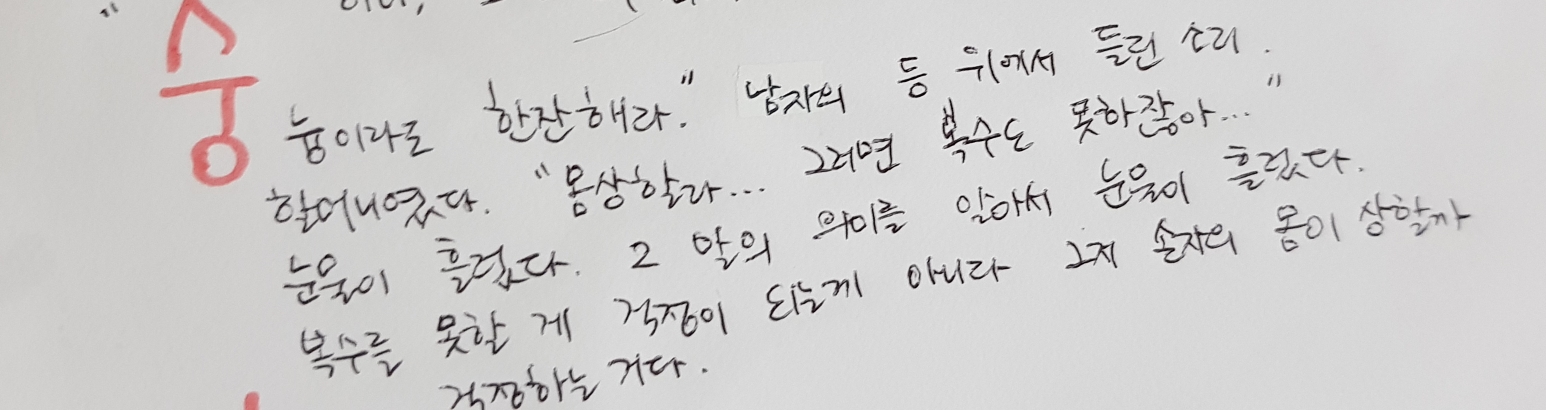 숭
늉이라도 한잔해라." 남자의 등 위에서 들린 소리.
할머니였다. "몸상할라... 그러면 복수도 못하잖아..."
눈물이 흘렀다. 그 말의 의미를 알아서 눈물이 흘렀다.
복수를 못할 게 걱정이 되는게 아니라 그저 손자의 몸이 상할까
걱정하는 거다.